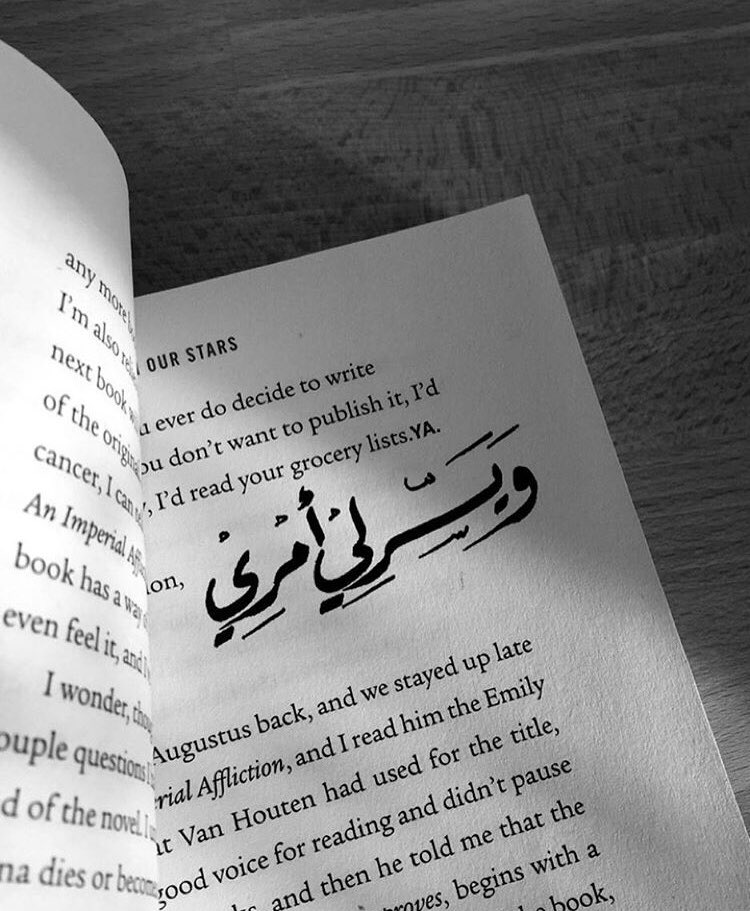 any more
I'm also
next book
of the
cancer, I can
An Imperial
book has a
even feel it, and
I wonder,
questions
d of the novel.
dies or
OUR STARS
ever do decide to write
don't want to publish it, I'd
I'd read your grocery lists.YA.
وَيَسِّرْ لِيْ أَمْرِيْ
Augustus back, and we stayed up late
Affliction, and I read him the Emily
Van Houten had used for the title,
good voice for reading and didn't pause
and then he told me that the
begins with a
book,